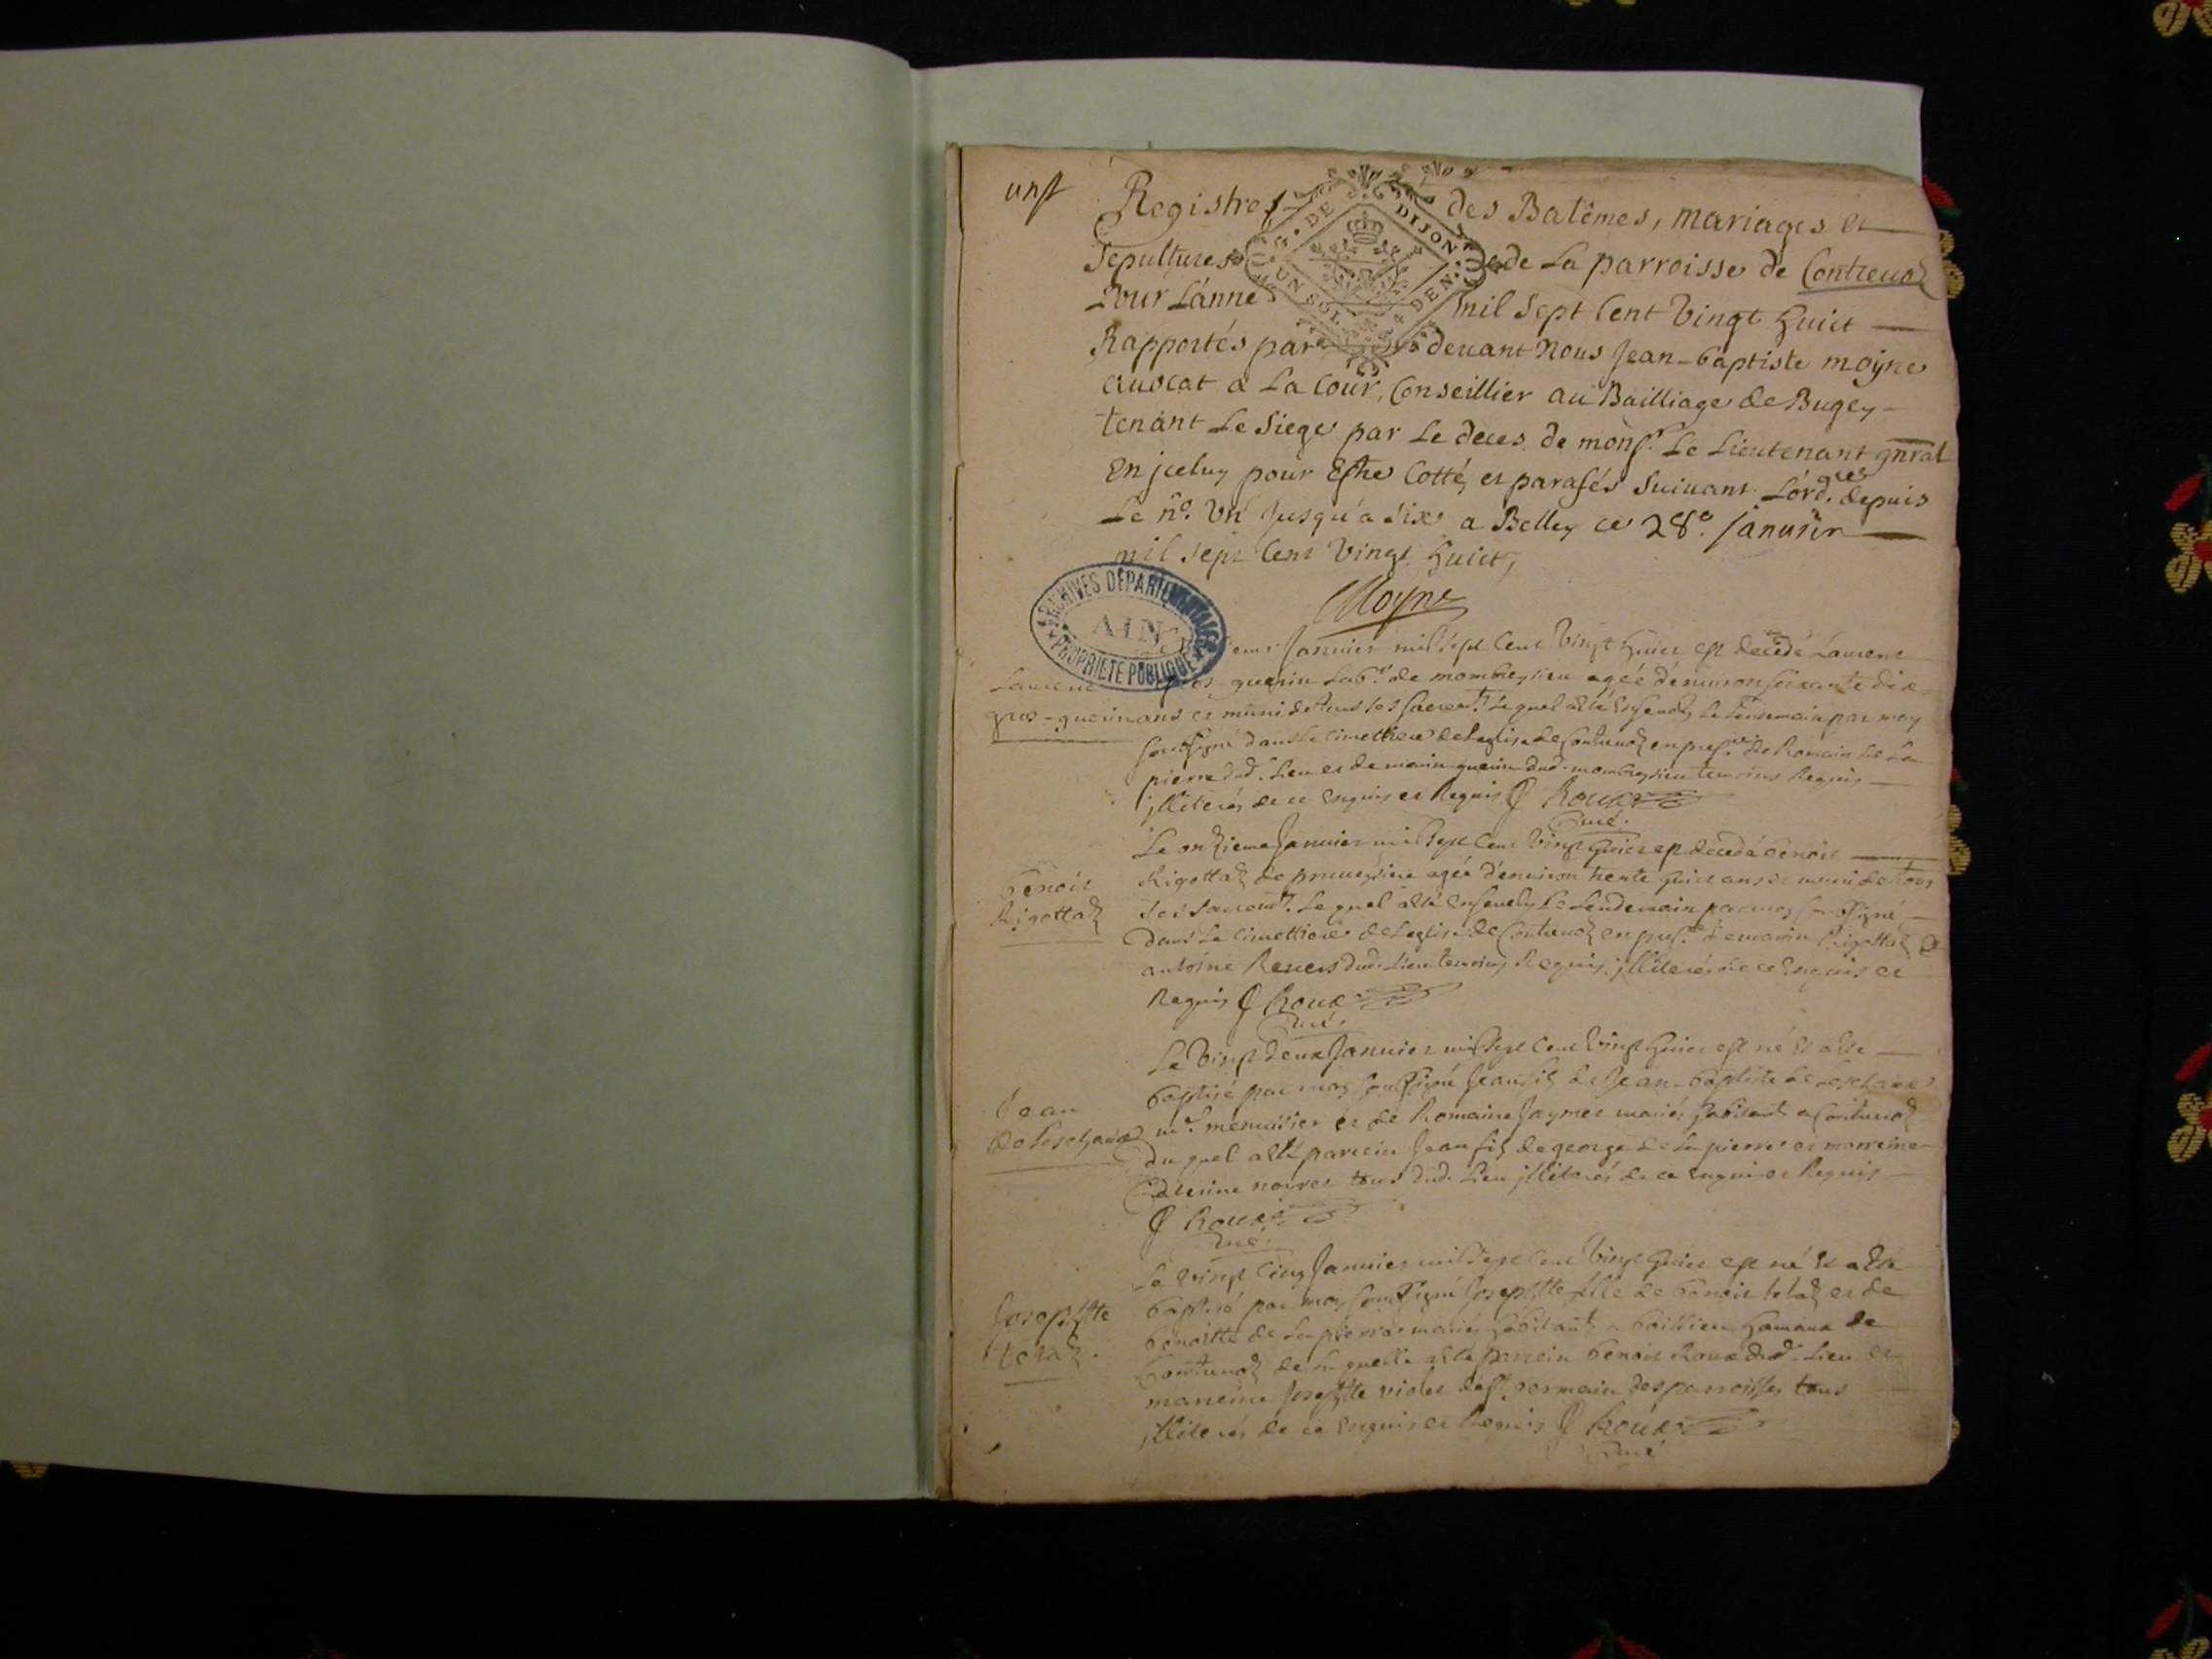 un
Registres des Batêmes, mariages et
Sepultures de La parroisse de Contreuoz
Pour L'anne mil Sept Cent Vingt huict
Rapportés par deuant Nous Jean-baptiste moÿne
auocat a La Cour, Conseillier au Bailliage de Bugey
tenant Le Siege par Le deces de monsr. Le Lieutenant gnral
En jceluy pour Estre Cotté, et parafés Suiuant L'ord. depuis
Le no. Vn Jusqu'a Six a Belley ce 28e. januier
mil Sept Cent Vingt huict,
Moyne
DE DIJON
UN SOL 4 DEN.
ARCHIVES DÉPARTEMENTALES
AIN
PROPRIÉTÉ PUBLIQUE
Januier mil Sept Cent Vingt huict est decedé Laurent
Laurent gros-guerin Labr. de mombeysieu agéé d'enuiron soixante dix
gros-guerin ans et muni de tous ses sacremts. Lequel a esté Enseuely Le Lendemain par moy
soussigné dans Le Cimettiere de Leglise de Contreuoz en presce. de Romain de La
pierre dud. Lieu et de guerin dud. mombeysieu temoins Requis
jlliterés de ce Enquis et Requis J Roux
Curé.
Le onzieme Januier mil Sept Cent Vingt huict est decedé benoit
benoit
Rigottaz
Rigottaz de preueysieu agéé d'enuiron trente huict ans et muni de tous
ses sacremts. Lequel a esté Enseuely Le Lendemain par moy soussigné
dans Le Cimettiere de Leglise de Contreuoz en presce. de Rigottaz et
antoine Reuers dud. Lieu temoins Requis jlliterés de ce Enquis et
Requis J Roux
Curé.
Le Vingt deux Januier mil Sept Cent Vingt huict est né et a esté
baptisé par moy soussigné Jean fils de Jean-baptiste de Leschaux
Jean
de Leschaux
me. menuisier et de Romaine Jaymet mariés habitants a Contreuoz
du quel a esté parrein Jean fils de george de La pierre et marreine
noires tous dud. Lieu jlliterés de ce Enquis et Requis
J Roux
Curé.
Le Vingt Cinq Januier mil Sept Cent Vingt huict est né et a esté
Josephte
baptisé par moy soussigné Josephte fille de benoit et de
benoitte de La pierre mariés habitants a boissieu hameau de
Contreuoz de La quelle a esté parrein benoit Roux dud. Lieu et
marreine Josephte violet de st. germain des parroisses tous
jlliterés de ce Enquis et Requis J Roux
Curé